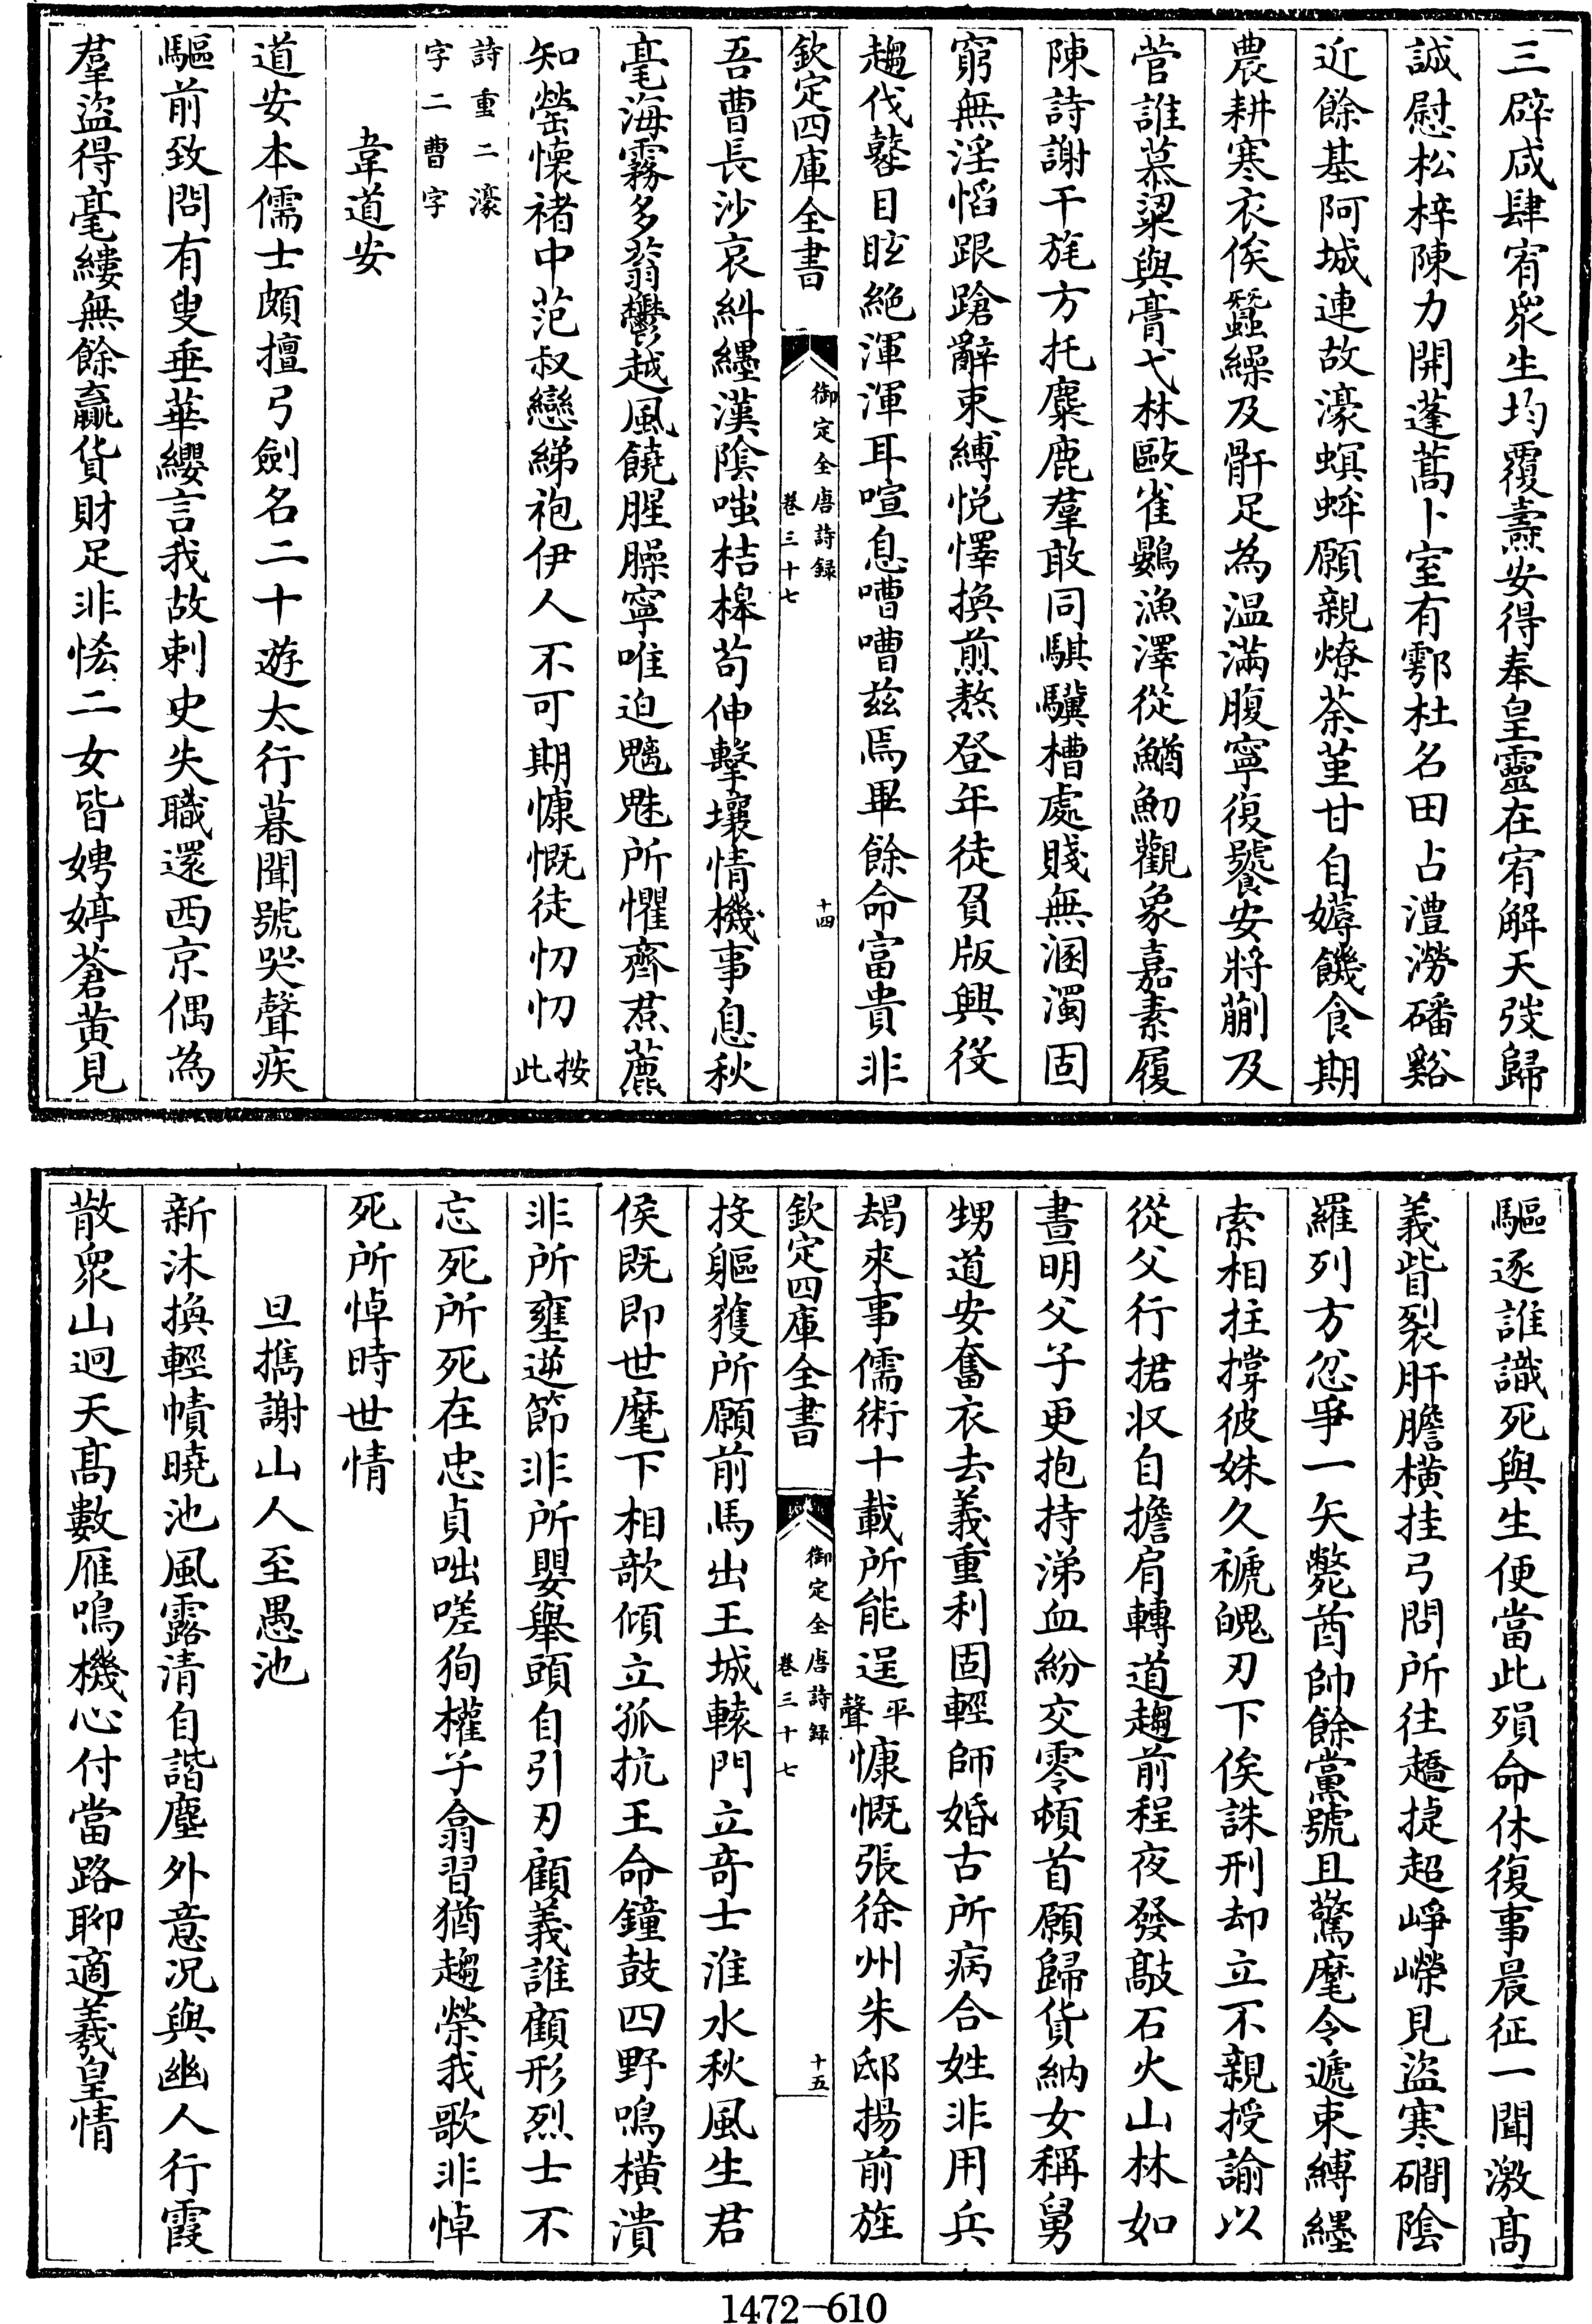 三辟咸肆宥衆生均覆燾安得奉皇靈在宥解天弢歸
誠慰松梓陳力開蓬蒿卜室有鄠杜名田占澧澇磻谿
近餘基阿城連故濠螟蛑願親燎荼堇甘自薅饑食期
農耕寒衣俟蠶繰及骭足為温滿腹寧復饕安將蒯及
菅誰慕粱與膏弋林敺雀鷃漁澤從鰌魛觀象嘉素履
陳詩謝干旄方托麋鹿羣敢同騏驥槽處賤無溷濁固
窮無淫慆踉蹌辭束縛悅懌換煎熬登年徒負版興役
趨伐鼛目眩絶渾渾耳喧息嘈嘈兹焉畢餘命富貴非
欽定四庫全書
御定全唐詩録
卷三十七
十四
吾曹長沙哀糾纆漢陰嗤桔槹苟伸擊壤情機事息秋
毫海霧多蓊鬱越風饒腥臊寧唯迫魑魅所懼齊焄藨
知罃懷褚中范叔戀綈袍伊人不可期慷慨徒忉忉按此
詩重二濠
字二曹字
韋道安
道安本儒士頗擅弓劍名二十遊太行暮聞號哭聲疾
驅前致問有叟垂華纓言我故刺史失職還西京偶為
羣盜得毫縷無餘贏貨財足非恡二女皆娉婷蒼黄見
驅逐誰識死與生便當此殞命休復事晨征一聞激髙
義眥裂肝膽横挂弓問所往趫捷超崢嶸見盜寒磵陰
羅列方忿爭一矢斃酋帥餘黨號且驚麾令遞束縛纆
索相拄撐彼姝久褫魄刃下俟誅刑却立不親授諭以
從父行捃收自擔肩轉道趨前程夜發敲石火山林如
晝明父子更抱持涕血紛交零頓首願歸貨納女稱舅
甥道安奮衣去義重利固輕師婚古所病合姓非用兵
朅來事儒術十載所能逞平聲慷慨張徐州朱邸揚前旌
欽定四庫全書
御定全唐詩録
卷三十七
十五
投軀獲所願前馬出王城轅門立竒士淮水秋風生君
侯既即世麾下相欹傾立孤抗王命鐘鼓四野鳴横潰
非所壅逆節非所嬰舉頭自引刃顧義誰顧形烈士不
忘死所死在忠貞咄嗟狥權子翕習猶趨榮我歌非悼
死所悼時世情
旦攜謝山人至愚池
新沐換輕幘曉池風露清自諧塵外意况與幽人行霞
散衆山迥天髙數雁鳴機心付當路聊適羲皇情
1472—610